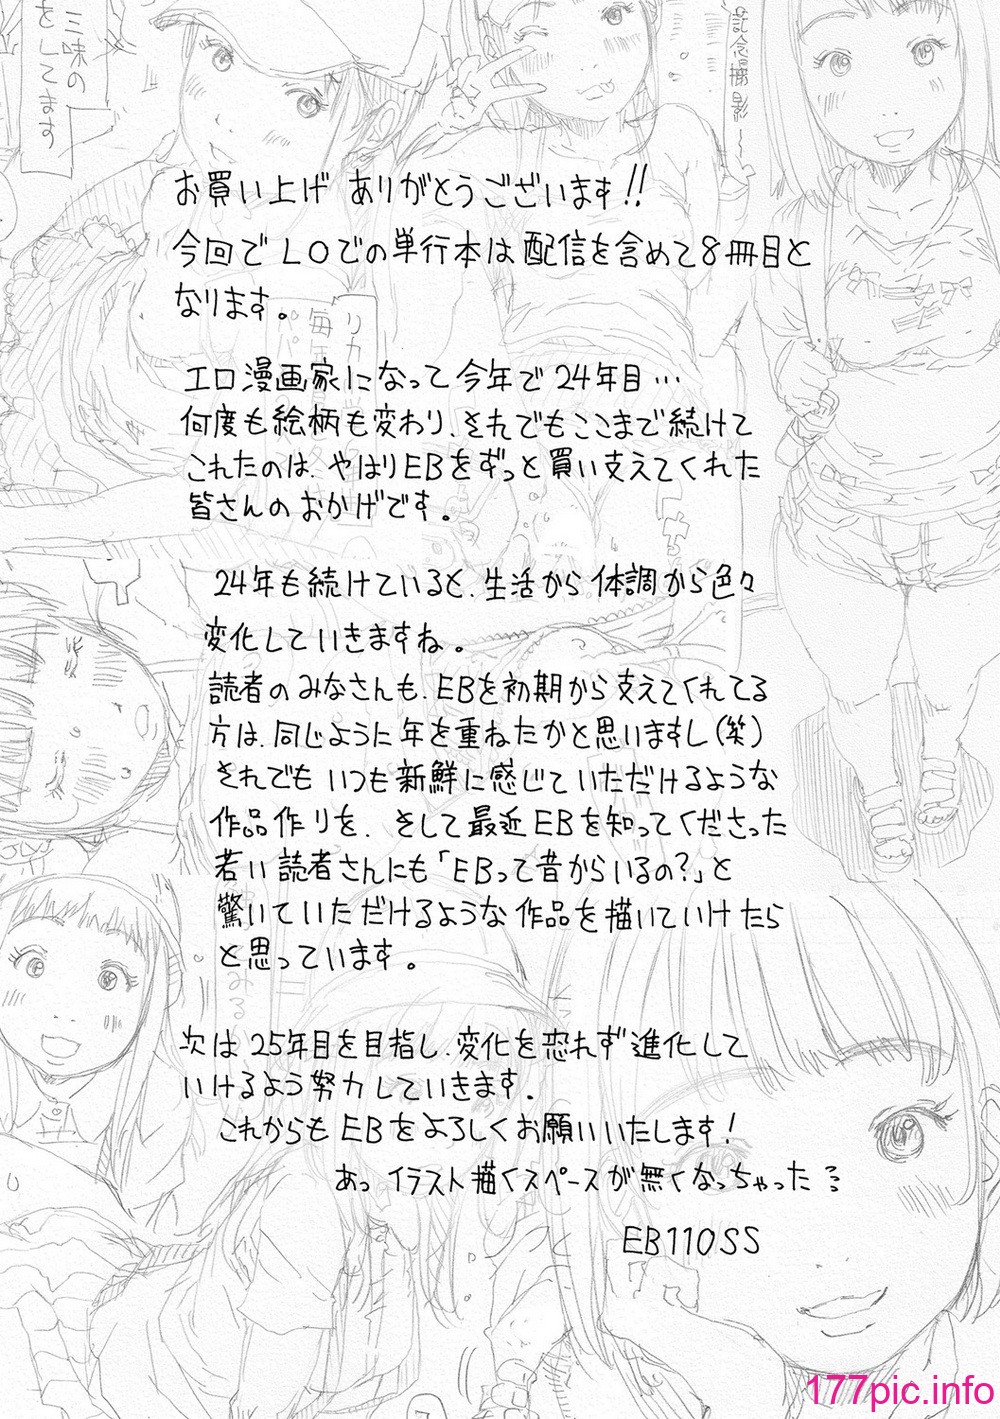 三味の
をしてます
記念撮影～
お買い上げ ありがとうございます!!
今回でLOでの単行本は配信を含めて8冊目と
なります。
エロ漫画家になって今年で24年目…
何度も絵柄も変わり、それでもここまで続けて
これたのは、やはりEBをずっと買い支えてくれた
皆さんのおかげです。
24年も続けていると、生活から体調から色々
変化していきますね。
読者のみなさんも、EBを初期から支えてくれてる
方は、同じように年を重ねたかと思いますし(笑)
それでもいつも新鮮に感じていただけるような
作品作りを、そして最近EBを知ってくださった
若い読者さんにも「EBって昔からいるの?」と
驚いていただけるような作品を描いていけたら
と思っています。
次は25年目を目指し、変化を恐れず進化して
いけるよう努力していきます。
これからもEBをよろしくお願いいたします!
あっイラスト描くスペースが無くなっちゃった…
EB110SS
177pic.info